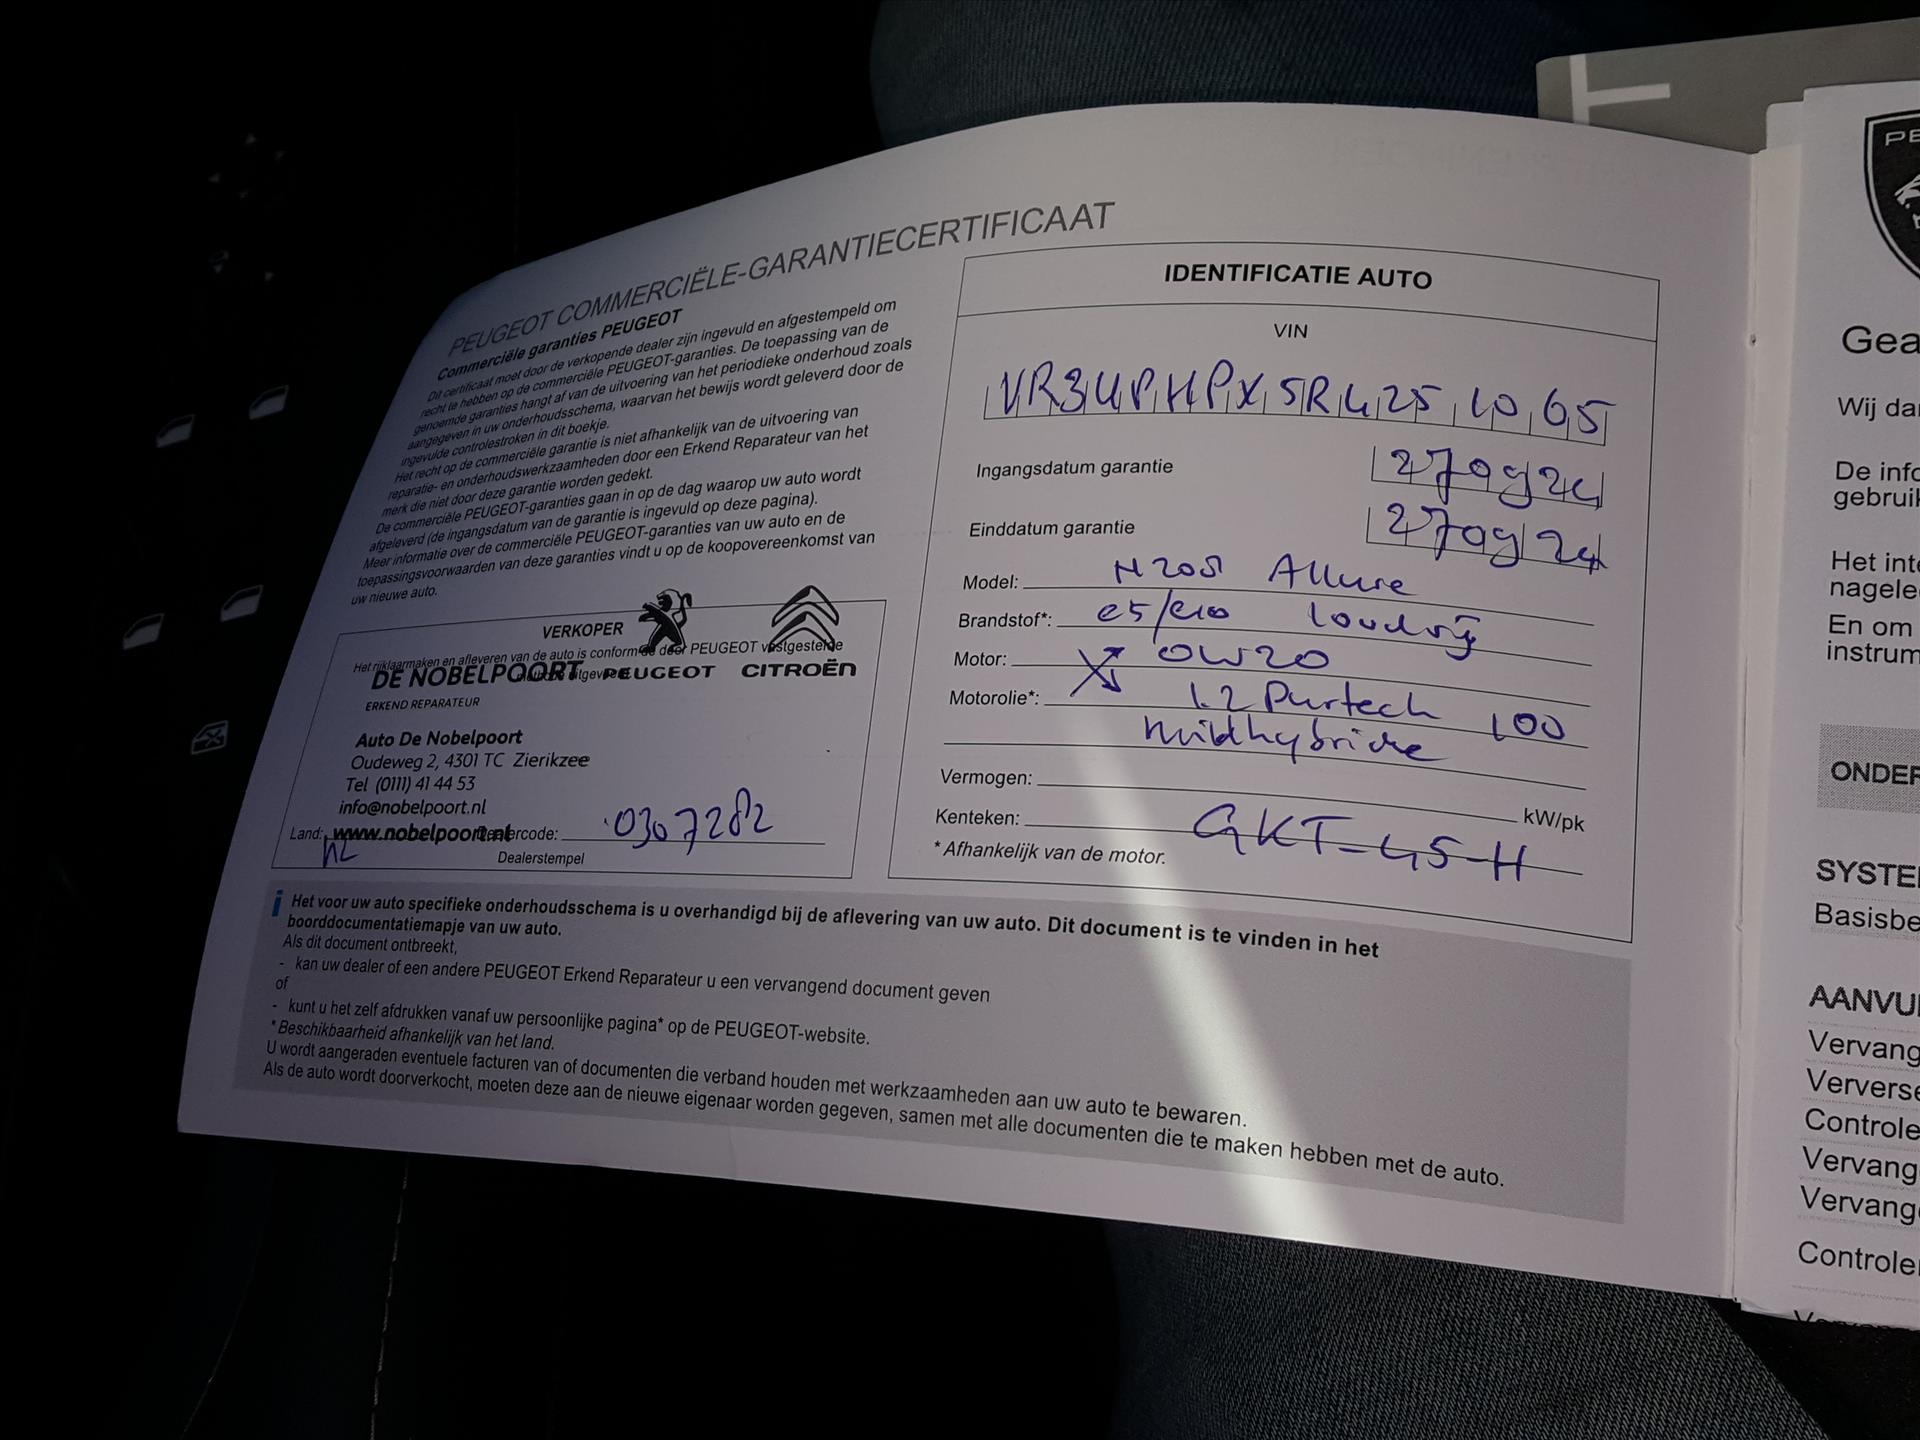 PEUGEOT COMMERCIËLE-GARANTIECERTIFICAAT
Commerciële garanties PEUGEOT
Dit certificaat moet door de verkopende dealer zijn ingevuld en afgestempeld om
recht te hebben op de commerciële PEUGEOT-garanties. De toepassing van de
genoemde garanties hangt af van de uitvoering van het periodieke onderhoud zoals
aangegeven in uw onderhoudsschema, waarvan het bewijs wordt geleverd door de
ingevulde controlestroken in dit boekje.
Het recht op de commerciële garantie is niet afhankelijk van de uitvoering van
reparatie- en onderhoudswerkzaamheden door een Erkend Reparateur van het
merk die niet door deze garantie worden gedekt.
De commerciële PEUGEOT-garanties gaan in op de dag waarop uw auto wordt
afgeleverd (de ingangsdatum van de garantie is ingevuld op deze pagina).
Meer informatie over de commerciële PEUGEOT-garanties van uw auto en de
toepassingsvoorwaarden van deze garanties vindt u op de koopovereenkomst van
uw nieuwe auto.
VERKOPER
Het rijklaarmaken en afleveren van de auto is conform de door PEUGEOT vastgestelde
DE NOBELPOORT PEUGEOT CITROËN
ERKEND REPARATEUR
Auto De Nobelpoort
Oudeweg 2, 4301 TC Zierikzee
Tel (0111) 41 44 53
info@nobelpoort.nl
Land: www.nobelpoort.nl Dealercode: 0307282
NL
Dealerstempel
IDENTIFICATIE AUTO
VIN
VR3UPHPX5R4251065
Ingangsdatum garantie 270924
Einddatum garantie 270924
Model: N208 Allure
Brandstof*: e5/e10 loodvrij
Motor: 0W20
Motorolie*: 1.2 Puretech 100
mildhybride
Vermogen: kW/pk
Kenteken: GKT-45-H
* Afhankelijk van de motor.
i Het voor uw auto specifieke onderhoudsschema is u overhandigd bij de aflevering van uw auto. Dit document is te vinden in het
boorddocumentatiemapje van uw auto.
Als dit document ontbreekt,
- kan uw dealer of een andere PEUGEOT Erkend Reparateur u een vervangend document geven
of
- kunt u het zelf afdrukken vanaf uw persoonlijke pagina* op de PEUGEOT-website.
* Beschikbaarheid afhankelijk van het land.
U wordt aangeraden eventuele facturen van of documenten die verband houden met werkzaamheden aan uw auto te bewaren.
Als de auto wordt doorverkocht, moeten deze aan de nieuwe eigenaar worden gegeven, samen met alle documenten die te maken hebben met de auto.
PE
Gea
Wij da
De info
gebruik
Het inte
nagele
En om
instrum
ONDER
SYSTE
Basisbe
AANVU
Vervang
Ververse
Controle
Vervang
Vervange
Controle